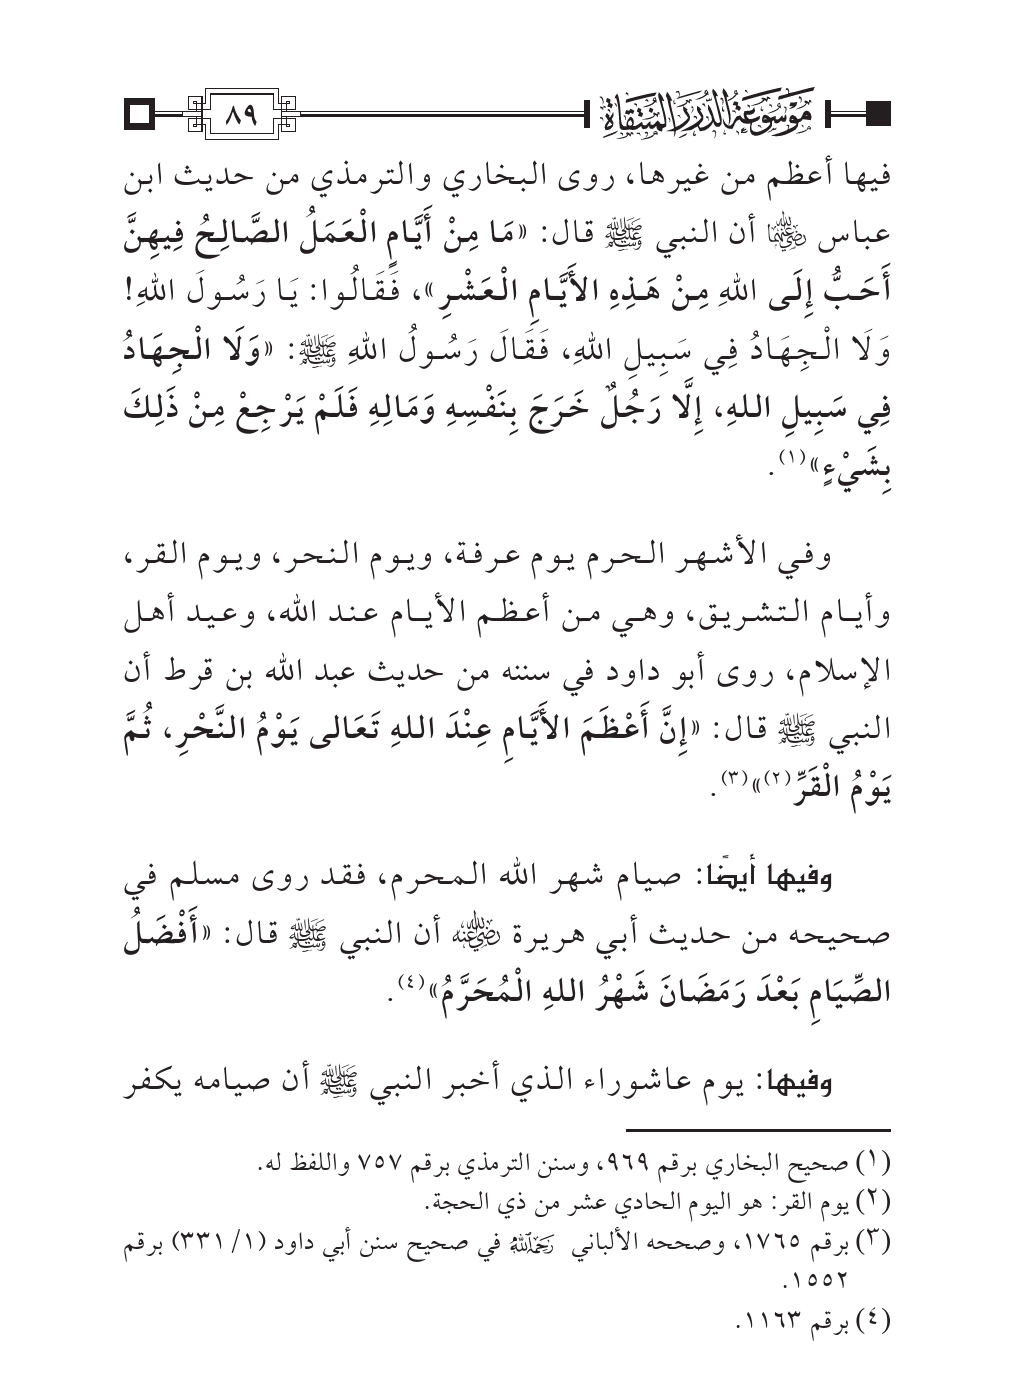 موسوعة الدرر المنتقاة
٨٩
فيها أعظم من غيرها، روى البخاري والترمذي من حديث ابن
عباس رضي الله عنهما أن النبي ﷺ قال: «مَا مِنْ أَيَّامٍ الْعَمَلُ الصَّالِحُ فِيهِنَّ
أَحَبُّ إِلَى اللهِ مِنْ هَذِهِ الأَيَّامِ الْعَشْرِ»، فَقَالُوا: يَا رَسُولَ اللهِ!
وَلَا الْجِهَادُ فِي سَبِيلِ اللهِ، فَقَالَ رَسُولُ اللهِ ﷺ: «وَلَا الْجِهَادُ
فِي سَبِيلِ اللهِ، إِلَّا رَجُلٌ خَرَجَ بِنَفْسِهِ وَمَالِهِ فَلَمْ يَرْجِعْ مِنْ ذَلِكَ
بِشَيْءٍ»(١).
وفي الأشهر الحرم يوم عرفة، ويوم النحر، ويوم القر،
وأيام التشريق، وهي من أعظم الأيام عند الله، وعيد أهل
الإسلام، روى أبو داود في سننه من حديث عبد الله بن قرط أن
النبي ﷺ قال: «إِنَّ أَعْظَمَ الأَيَّامِ عِنْدَ اللهِ تَعَالى يَوْمُ النَّحْرِ، ثُمَّ
يَوْمُ الْقَرِّ(٢)»(٣).
وفيها أيضًا: صيام شهر الله المحرم، فقد روى مسلم في
صحيحه من حديث أبي هريرة رضي الله عنه أن النبي ﷺ قال: «أَفْضَلُ
الصِّيَامِ بَعْدَ رَمَضَانَ شَهْرُ اللهِ الْمُحَرَّمُ»(٤).
وفيها: يوم عاشوراء الذي أخبر النبي ﷺ أن صيامه يكفر
(١) صحيح البخاري برقم ٩٦٩، وسنن الترمذي برقم ٧٥٧ واللفظ له.
(٢) يوم القر: هو اليوم الحادي عشر من ذي الحجة.
(٣) برقم ١٧٦٥، وصححه الألباني رحمه الله في صحيح سنن أبي داود (١/ ٣٣١) برقم
١٥٥٢.
(٤) برقم ١١٦٣.